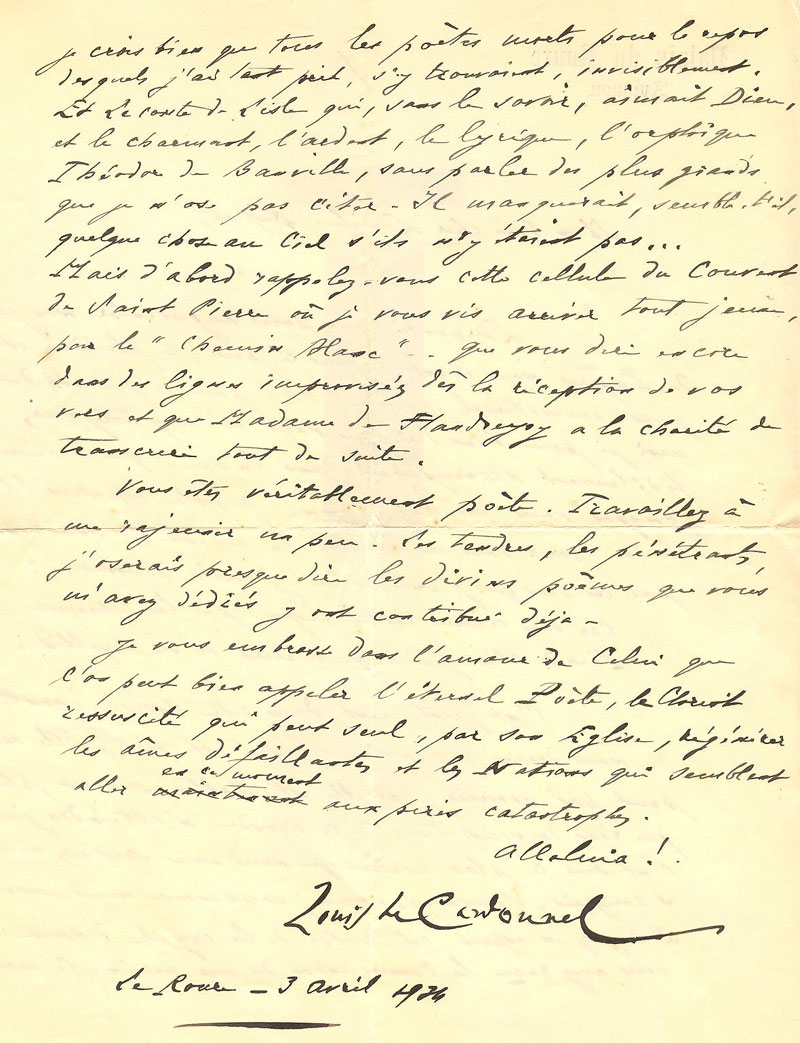 je crois bien que tous les poètes morts pour le repos
desquels j'ai tant prié, s'y trouvaient, invisiblement.
Et Leconte de Lisle qui, sans le savoir, aimait Dieu,
et le charmant, l'ardent, le lyrique, l'orphique
Théodore de Banville, sans parler des plus grands
que je n'ose pas citer - Il manquerait, semble-t-il,
quelque chose au Ciel s'ils n'y étaient pas...
Mais d'abord rappelez-vous cette cellule du Couvent
de Saint Pierre où je vous vis arriver tout jeune,
par le "Chemin blanc" - . que vous dire encore
dans des lignes improvisées dès la réception de vos
vers et que Madame de Flandreysy a la charité de
transcrire tout de suite.
Vous êtes véritablement poète. Travaillez à
me rajeunir un peu. Les tendres, les pénétrants,
j'oserais presque dire les divins poèmes que vous
m'avez dédiés y ont contribué déjà -
Je vous embrasse dans l'amour de Celui que
l'on peut bien appeler l'éternel Poète, le Christ
ressuscité qui peut seul, par son Eglise, régénérer
les âmes défaillantes et les Nations qui semblent
en ce moment
aller maintenant aux pires catastrophes.
Alleluia !.
Louis Le Cardonnel
Le Roure - 3 avril 1934